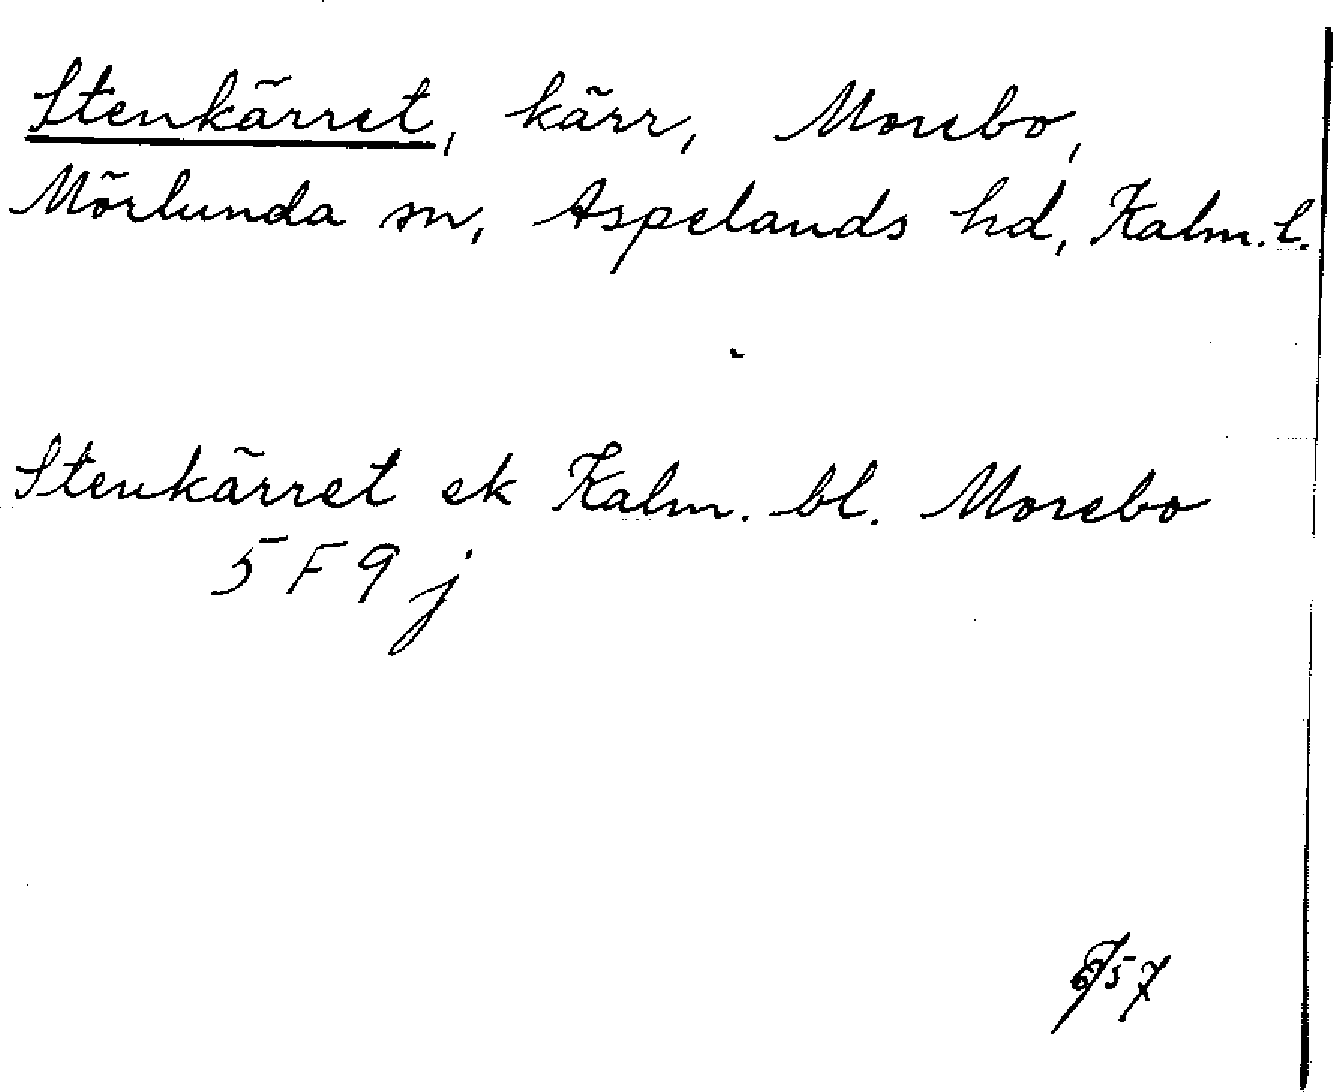 Stenkärret, kärr, Morebo,
Mörlunda sn, Aspelands hd, Kalm. l.
Stenkärret ek Kalm. bl. Morebo
5 F 9 j